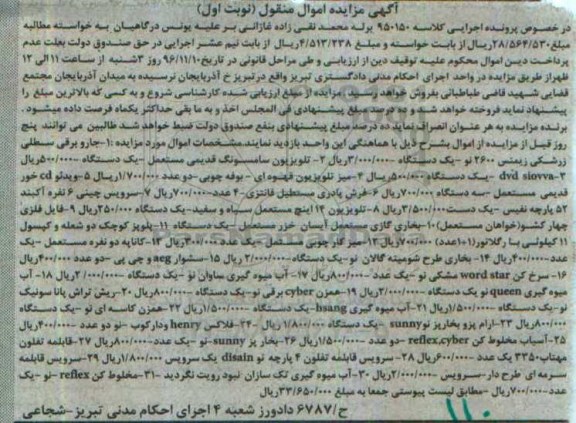 آگهی مزایده اموال منقول (نوبت اول)
در خصوص پرونده اجرایی کلاسه ۹۵۰۱۵۰ برله محمد تقی زاده غازانی بر علیه یونس درگاهیان به خواسته مطالبه
مبلغ ۲۸/۵۶۴/۵۳۰ریال از بابت خواسته و مبلغ ۴/۵۱۳/۲۳۸ریال از بابت نیم عشر اجرایی در حق صندوق دولت بعلت عدم
پرداخت دین اموال محکوم علیه توقیف دین از ارزیابی و طی مراحل قانونی در تاریخ ۹۶/۱۱/۱۰ روز ۳شنبه از ساعت ۱۱ الی ۱۲
ظهراز طریق مزایده در واحد اجرای احکام مدنی دادگستری تبریز واقع درتبریزخ آذربایجان نرسیده به میدان آذربایجان مجتمع
قضایی شهید قاضی طباطبائی بفروش خواهد رسید مزایده از مبلغ ارزیابی شده کارشناسی شروع و به کسی که بالاترین مبلغ را
پیشنهاد نماید فروخته خواهد شد و ده درصد مبلغ پیشنهادی فی المجلس اخذ و به ما بقی حداکثر یکماه فرصت داده میشود.
برنده مزایده به هر عنوان انصراف نماید ده درصد مبلغ پیشنهادی بنفع صندوق دولت ضبط خواهد شد طالبین می توانند پنج
روز قبل از مزایده از اموال بشرح ذیل با هماهنگی این واحد بازدید نمایند.مشخصات اموال مورد مزایده :۱-جارو برقی سطلی
زرشکی زیمنس ۲۶۰۰ نو -یک دستگاه -۳/۰۰۰/۰۰۰ریال ۲- تلویزیون سامسونگ قدیمی مستعمل -یک دستگاه -۵۰۰/۰۰۰ریال
۳-dvd siovva -یک دستگاه ۵۰۰/۰۰۰ریال ۴-میز تلویزیون قهوه ای - بوفه چوبی-دو عدد ۱/۷۰۰/۰۰۰ریال ۵-ویدئو cd خور
قدیمی مستعمل -سه دستگاه ۷۰۰/۰۰۰ریال ۶-فرش پادری مستطیل فانتزی-۴ عدد-۷۰۰/۰۰۰ریال ۷-سرویس چینی ۶ نفره آکبند
۵۲ پارچه نفیس -یک دست۳/۵۰۰/۰۰۰ریال ۸-تلویزیون ۱۴ اینچ مستعمل سیاه و سفید-یک دستگاه ۲۵۰/۰۰۰ریال ۹-فایل فلزی
چهار کشو(خواهان مستعمل)۱۰-بخاری گازی مستعمل آیسان خزر مستعمل-یک دستگاه ۱۱-پلوپز کوچک دو شعله و کپسول
۱۱ کیلوئی با رگلاتور(۱۰۱عدد) ۷۰۰/۰۰۰ریال ۱۲-میز کار چوبی مستعمل-یک عدد ۳۰۰/۰۰۰ریال ۱۳-کاناپه دو نفره مستعمل -یک
عدد-۴۰۰/۰۰۰ریال ۱۴- بخاری طرح شومینه گالان نو -یک دستگاه -۲/۰۰۰/۰۰۰ ریال ۱۵-سشوار aeg و جی پی -دو عدد ۴۰۰/۰۰۰ریال
۱۶-سرخ کن word star مشکی نو -یک عدد -۸۰۰/۰۰۰ریال ۱۷-آب میوه گیری ساوان نو -یک دستگاه -۲/۰۰۰/۰۰۰ریال ۱۸- آب
میوه گیری queen نو یک دستگاه -۲/۰۰۰/۰۰۰ریال ۱۹-همزن cyber برقی نو-یک دستگاه -۸۰۰/۰۰۰ریال ۲۰-ریش تراش پاناسونیک
نو-یک دستگاه-۱/۵۰۰/۰۰۰ریال ۲۱-آب میوه گیری hsang -یک دستگاه -۱/۵۰۰/۰۰۰ریال ۲۲-همزن کاسه ای نو -یک دستگاه
۸۰۰/۰۰۰ریال ۲۳-آرام پزو بخارپز نوsunny -یک دستگاه ۱/۸۰۰/۰۰۰ ریال -۲۴-فلاکس henry ودارکوب -نو دو عدد -۴۰۰/۰۰۰ریال
۲۵-آسیاب مخلوط کن reflex,cyber-دو عدد -۱/۵۰۰/۰۰۰ریال ۲۶-بخار پز sunny-نو-یک عدد-۸۰۰/۰۰۰ریال ۲۷-قابلمه تفلون
مهتاب ۳۳۵۰ یک عدد -۶۰۰/۰۰۰ریال ۲۸-سرویس قابلمه تفلون ۴ پارچه نو disain یک سرویس ۱/۸۰۰/۰۰۰ریال ۲۹-سرویس قابلمه
سرمه ای طرح دار-سرویس -۲/۰۰۰/۰۰۰ریال ۳۰-آب میوه گیری تک سازان نبود رویت نگردید -۳۱-مخلوط کن reflex -نو -یک
عدد-۷۰۰/۰۰۰ریال -مطابق لیست پیوستی جمعا به مبلغ ۳۳/۶۵۰/۰۰۰ریال
ح/۶۷۸۷ دادورز شعبه ۴ اجرای احکام مدنی تبریز-شجاعی
۱۱۰